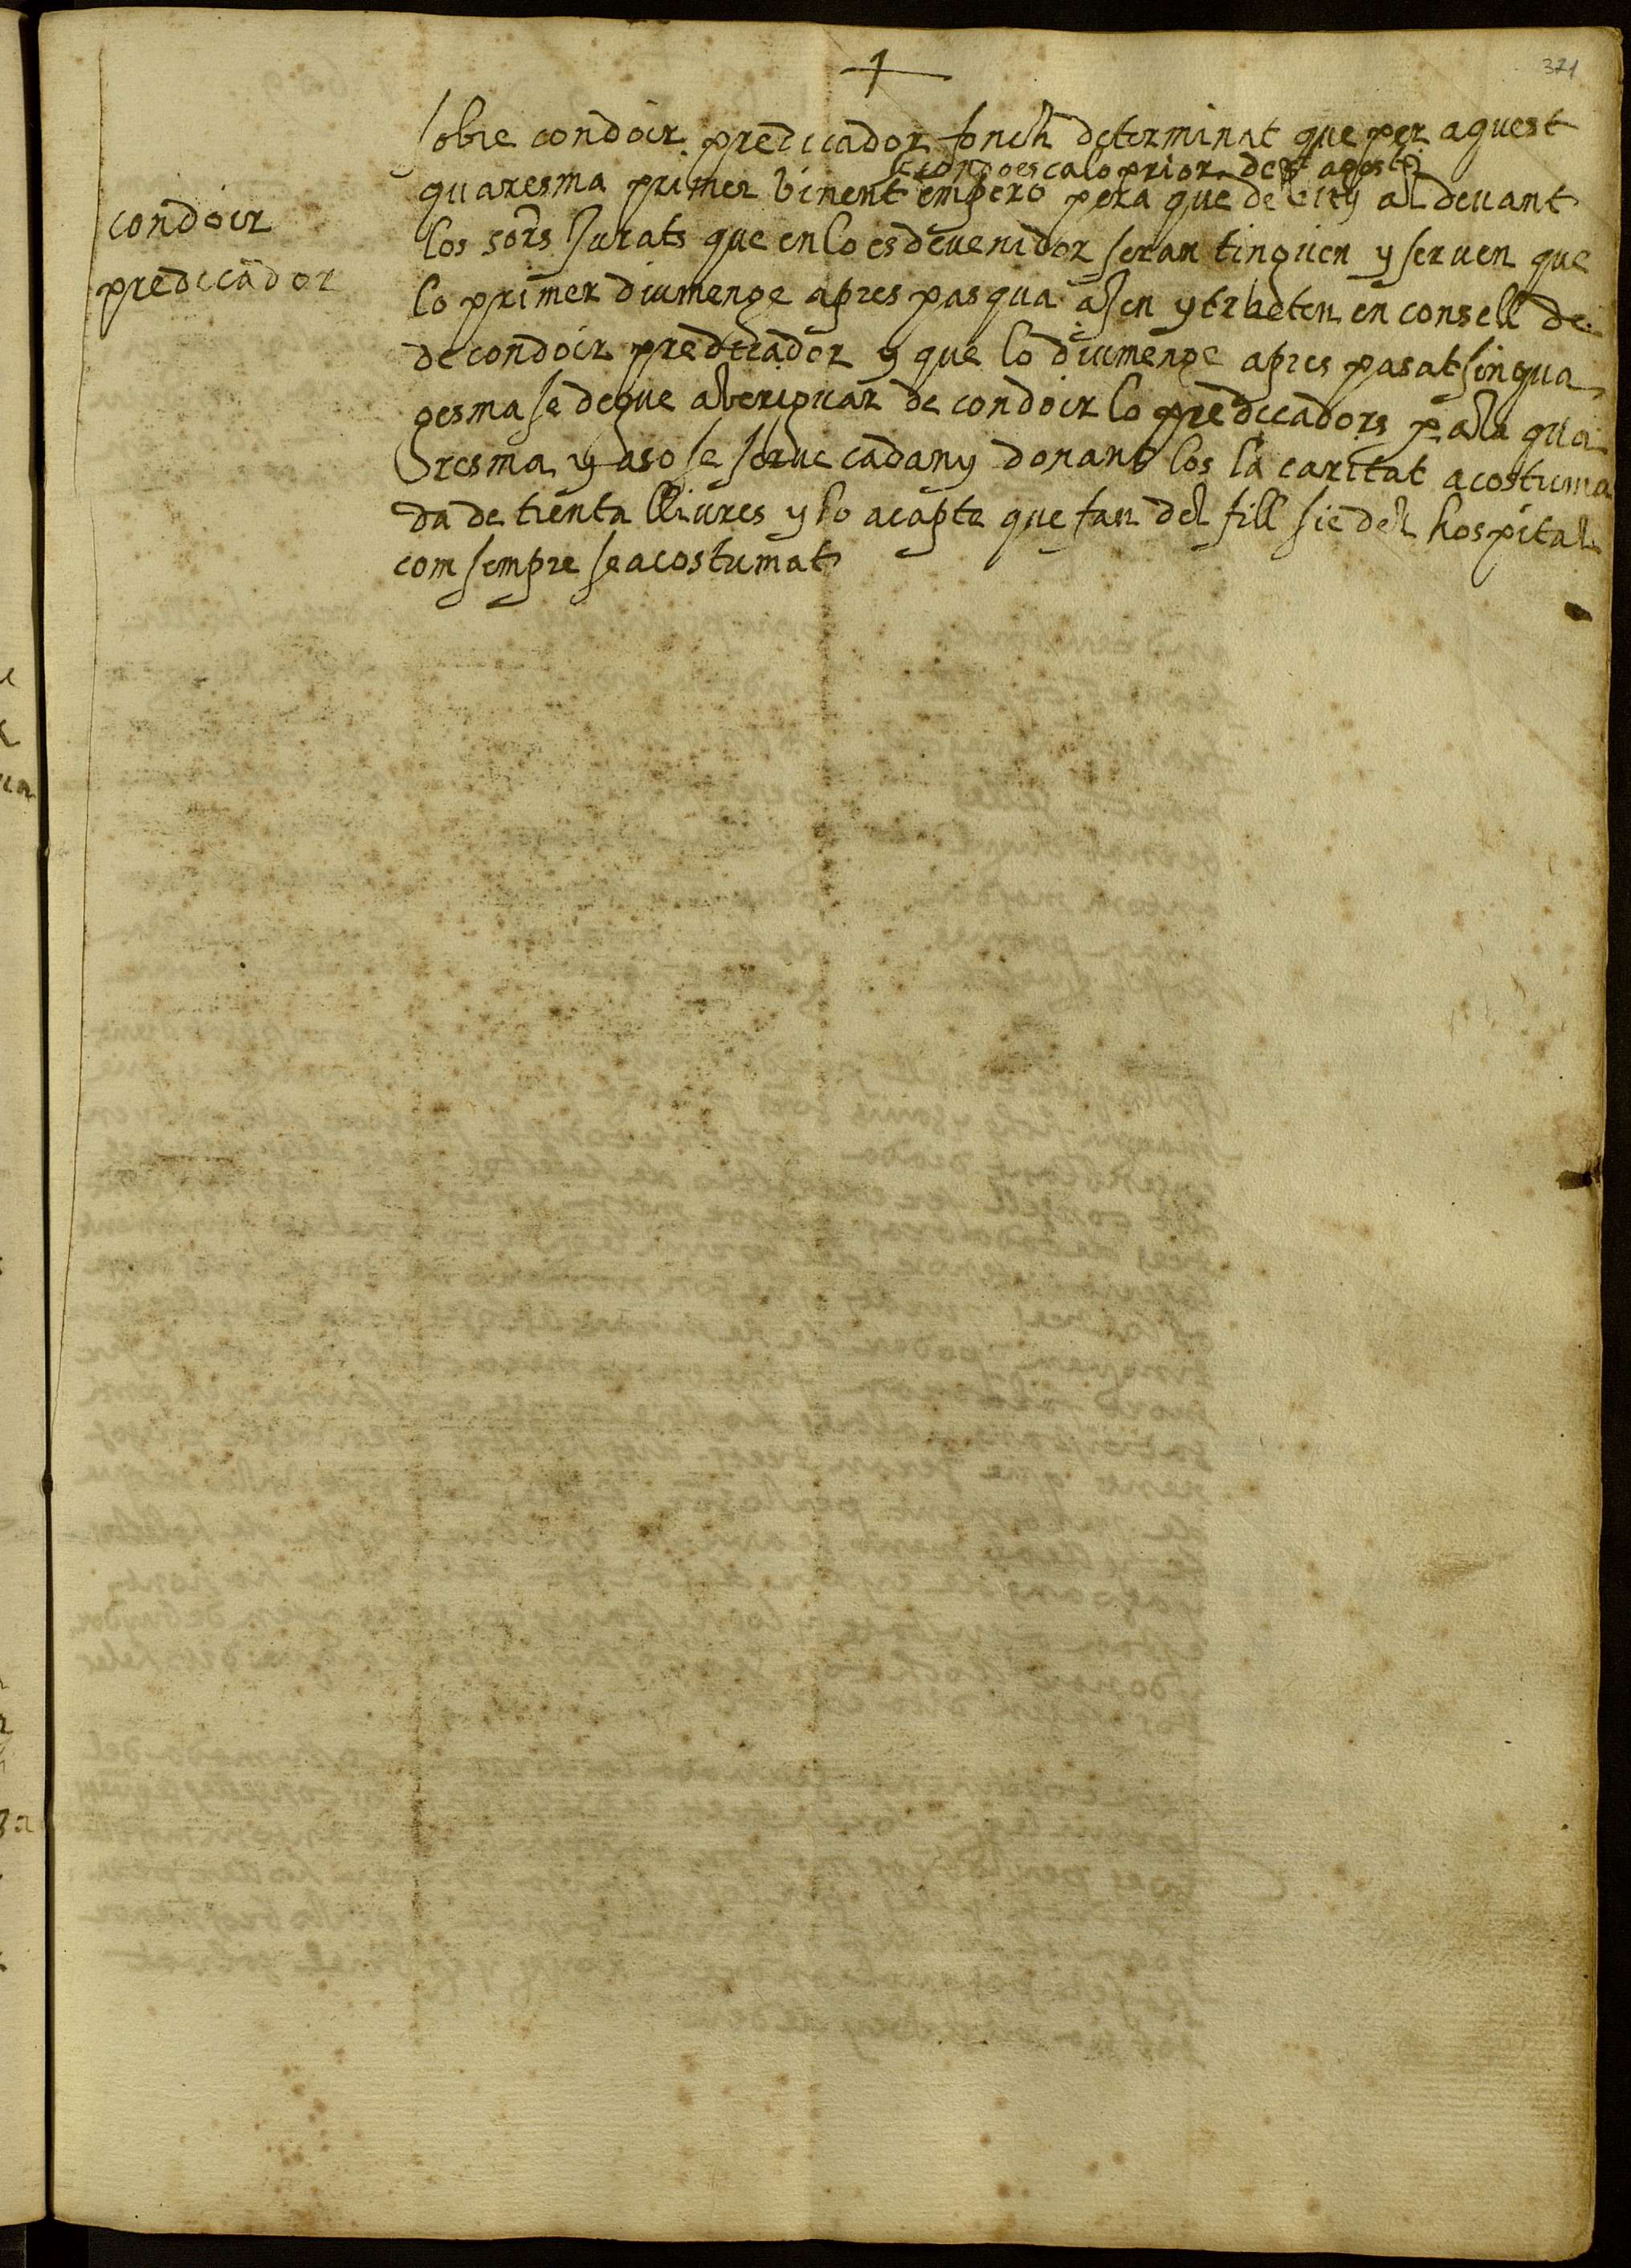 371
condoir
predicador
sobre condoir predicador fonch determinat que per aquest
se condoesca lo prior de st agosti
quaresma primer vinent empero pera que de assi al devant
los sors Jurats que en lo esdevenidor seran tinguen y serven que
lo primer diumenge apres pasqua asen y tracten en consell de
de condoir predicador y que lo diumenge apres pasat sinqua
gesma se degue averiguar de condoir lo predicadors pa la qua
resma y aso se serve cadany donant los la caritat acostuma
da de trenta lliures y lo acapte que fan del fill sie del hospital
com sempre se acostumat